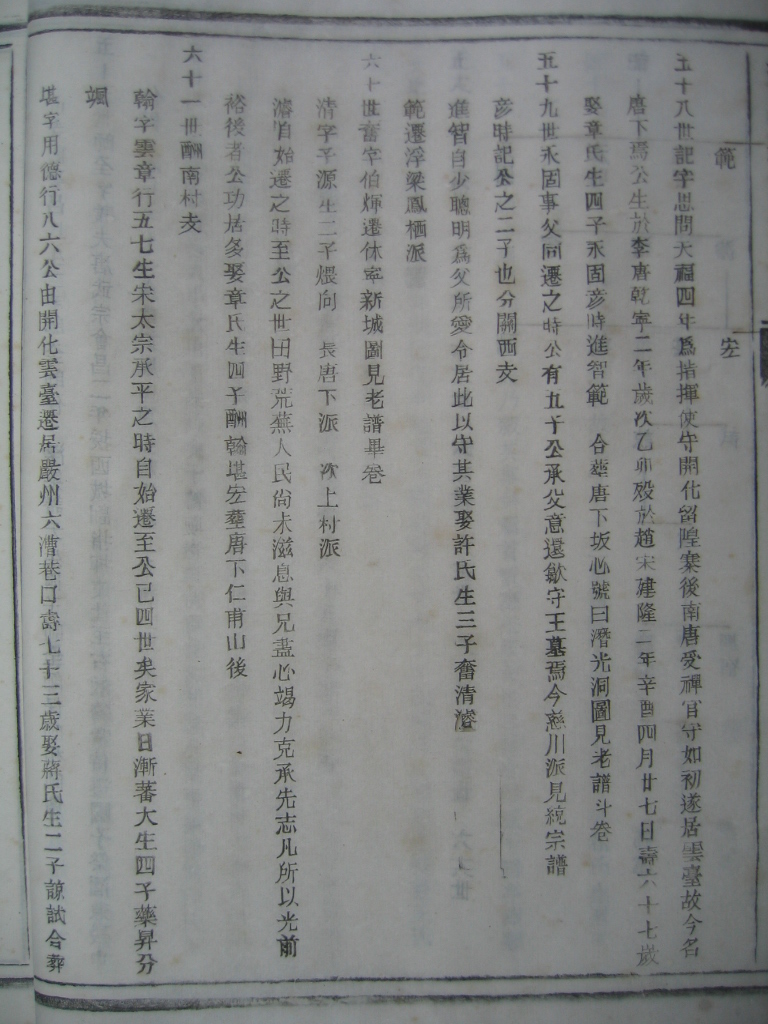 範 宏
五十八世記字思問天福四年爲指揮使守開化留隍寨後南唐受禪官守如初遂居雲臺故今名
唐下焉公生於李唐乾寧二年歲次乙卯殁於趙宋建隆二年辛酉四月廿七日壽六十七歲
娶章氏生四子永固彦時進智範 合塟唐下坂心號曰潛光洞圖見老譜斗卷
五十九世永固事父同遷之時公有五子公承父意還歙守王墓焉今慈川派見統宗譜
彦時記公之二子也分關西支
進智自少聰明爲父所愛令居此以守其業娶許氏生三子奮清濬
範遷浮梁鳳栖派
六十世奮字伯煇遷休寧新城圖見老譜畢卷
清字子源生二子煨向 長唐下派 次上村派
濬自始遷之時至公之世田野荒蕪人民尚未滋息與兄盡心竭力克承先志凡所以光前
裕後者公功居多娶章氏生四子酬翰堪宏塟唐下仁甫山後
六十一世酬南村支
翰字雲章行五七生宋太宗承平之時自始遷至公已四世矣家業日漸蕃大生四子藥昇分
颯
堪字用德行八六公由開化雲臺遷居嚴州六漕巷口壽七十三歲娶蔣氏生二子諒試合葬